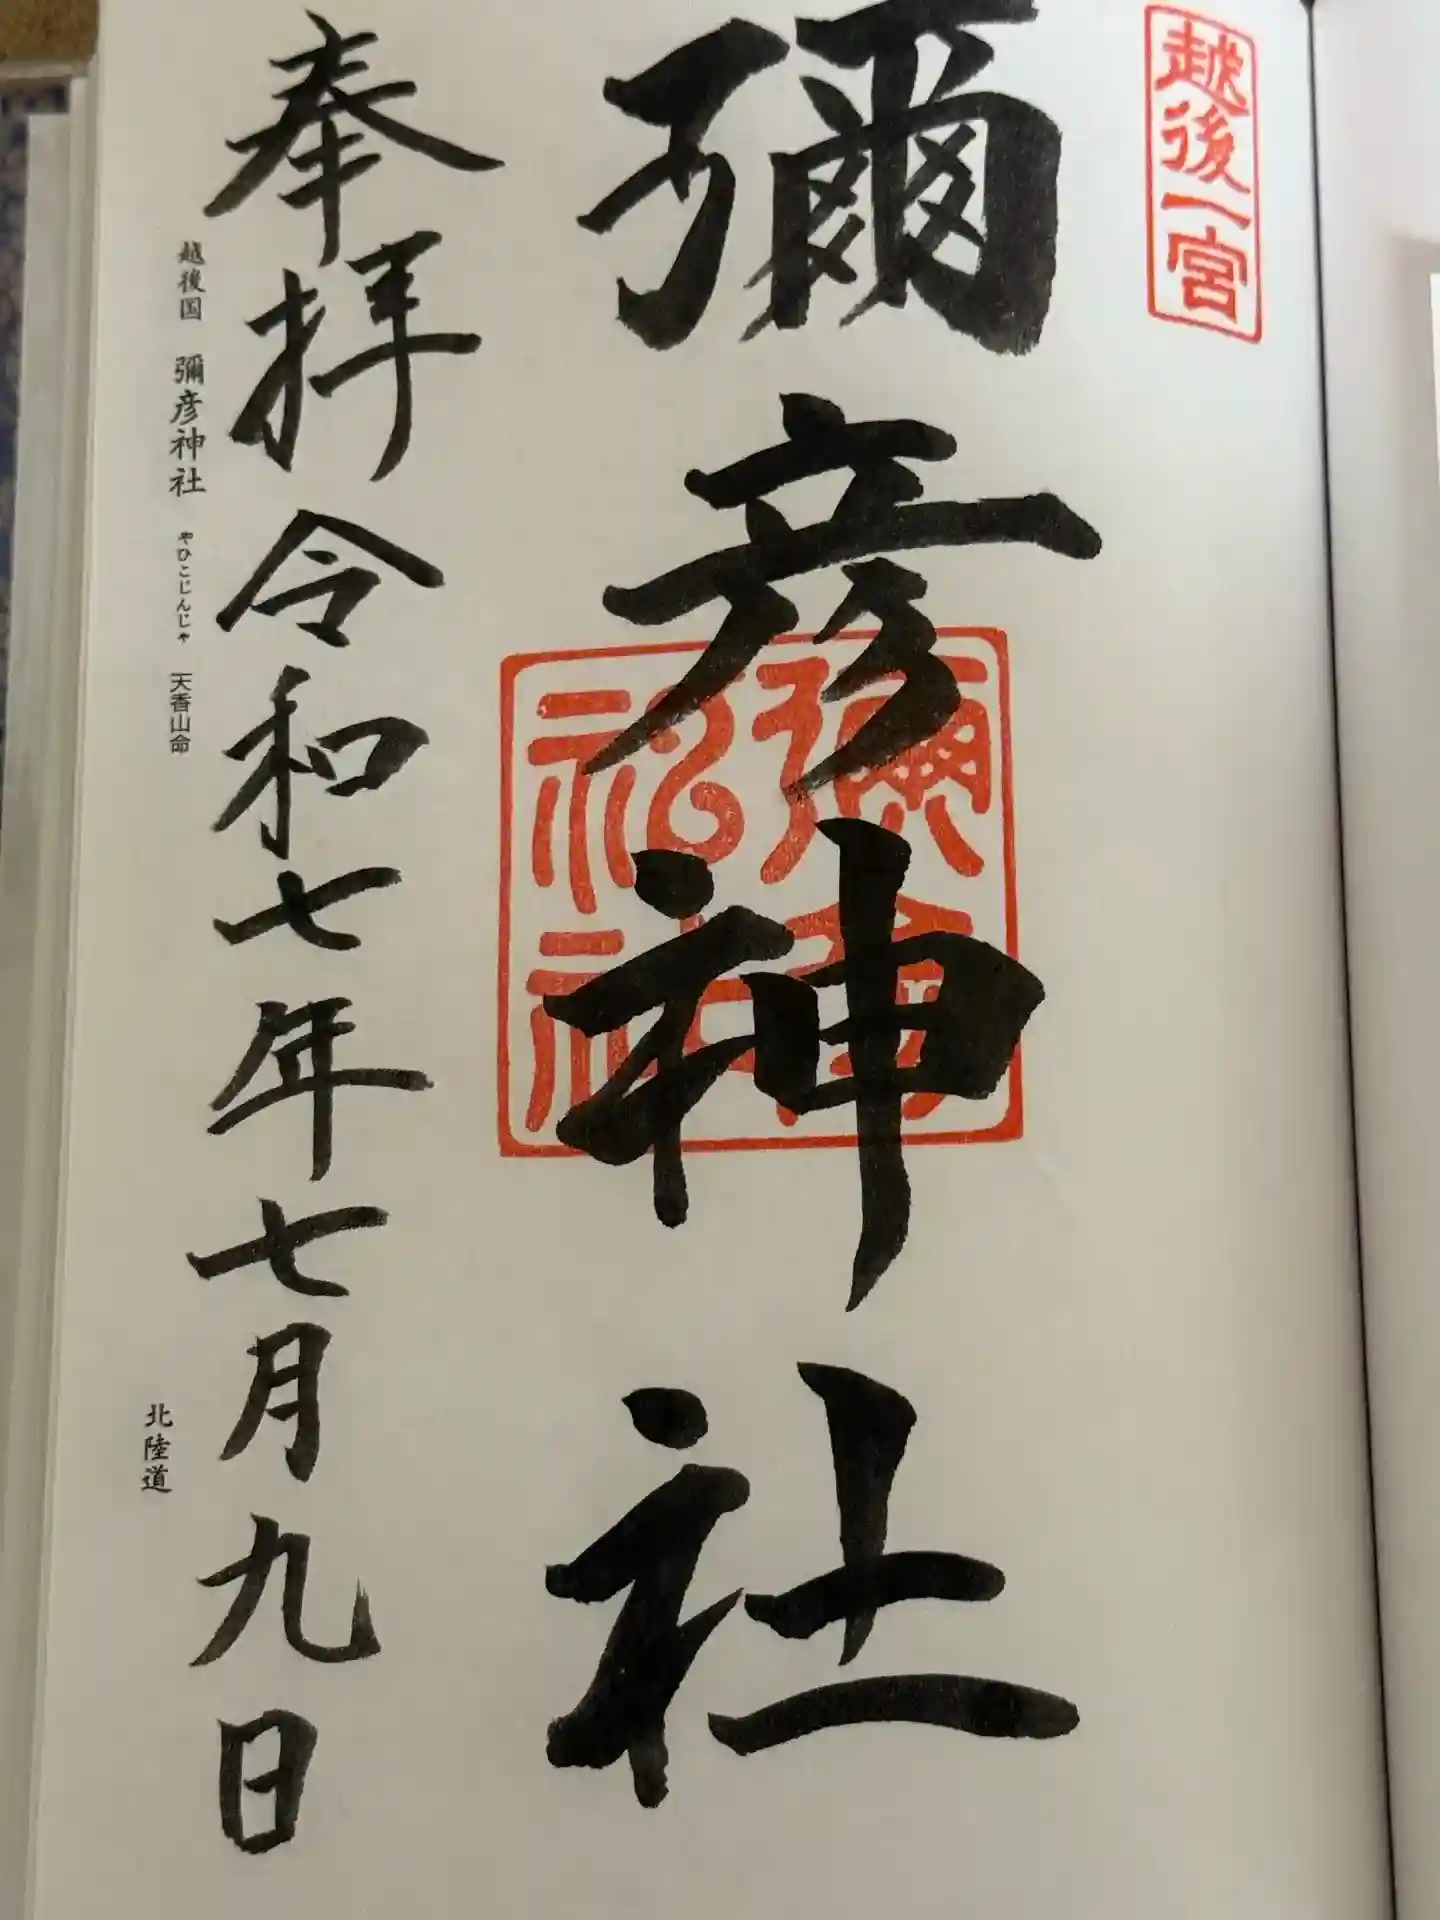 越後一宮
彌彦神社
彌彦神社
奉拝 令和七年七月九日
越後国 彌彦神社 やひこじんじゃ 天香山命
北陸道